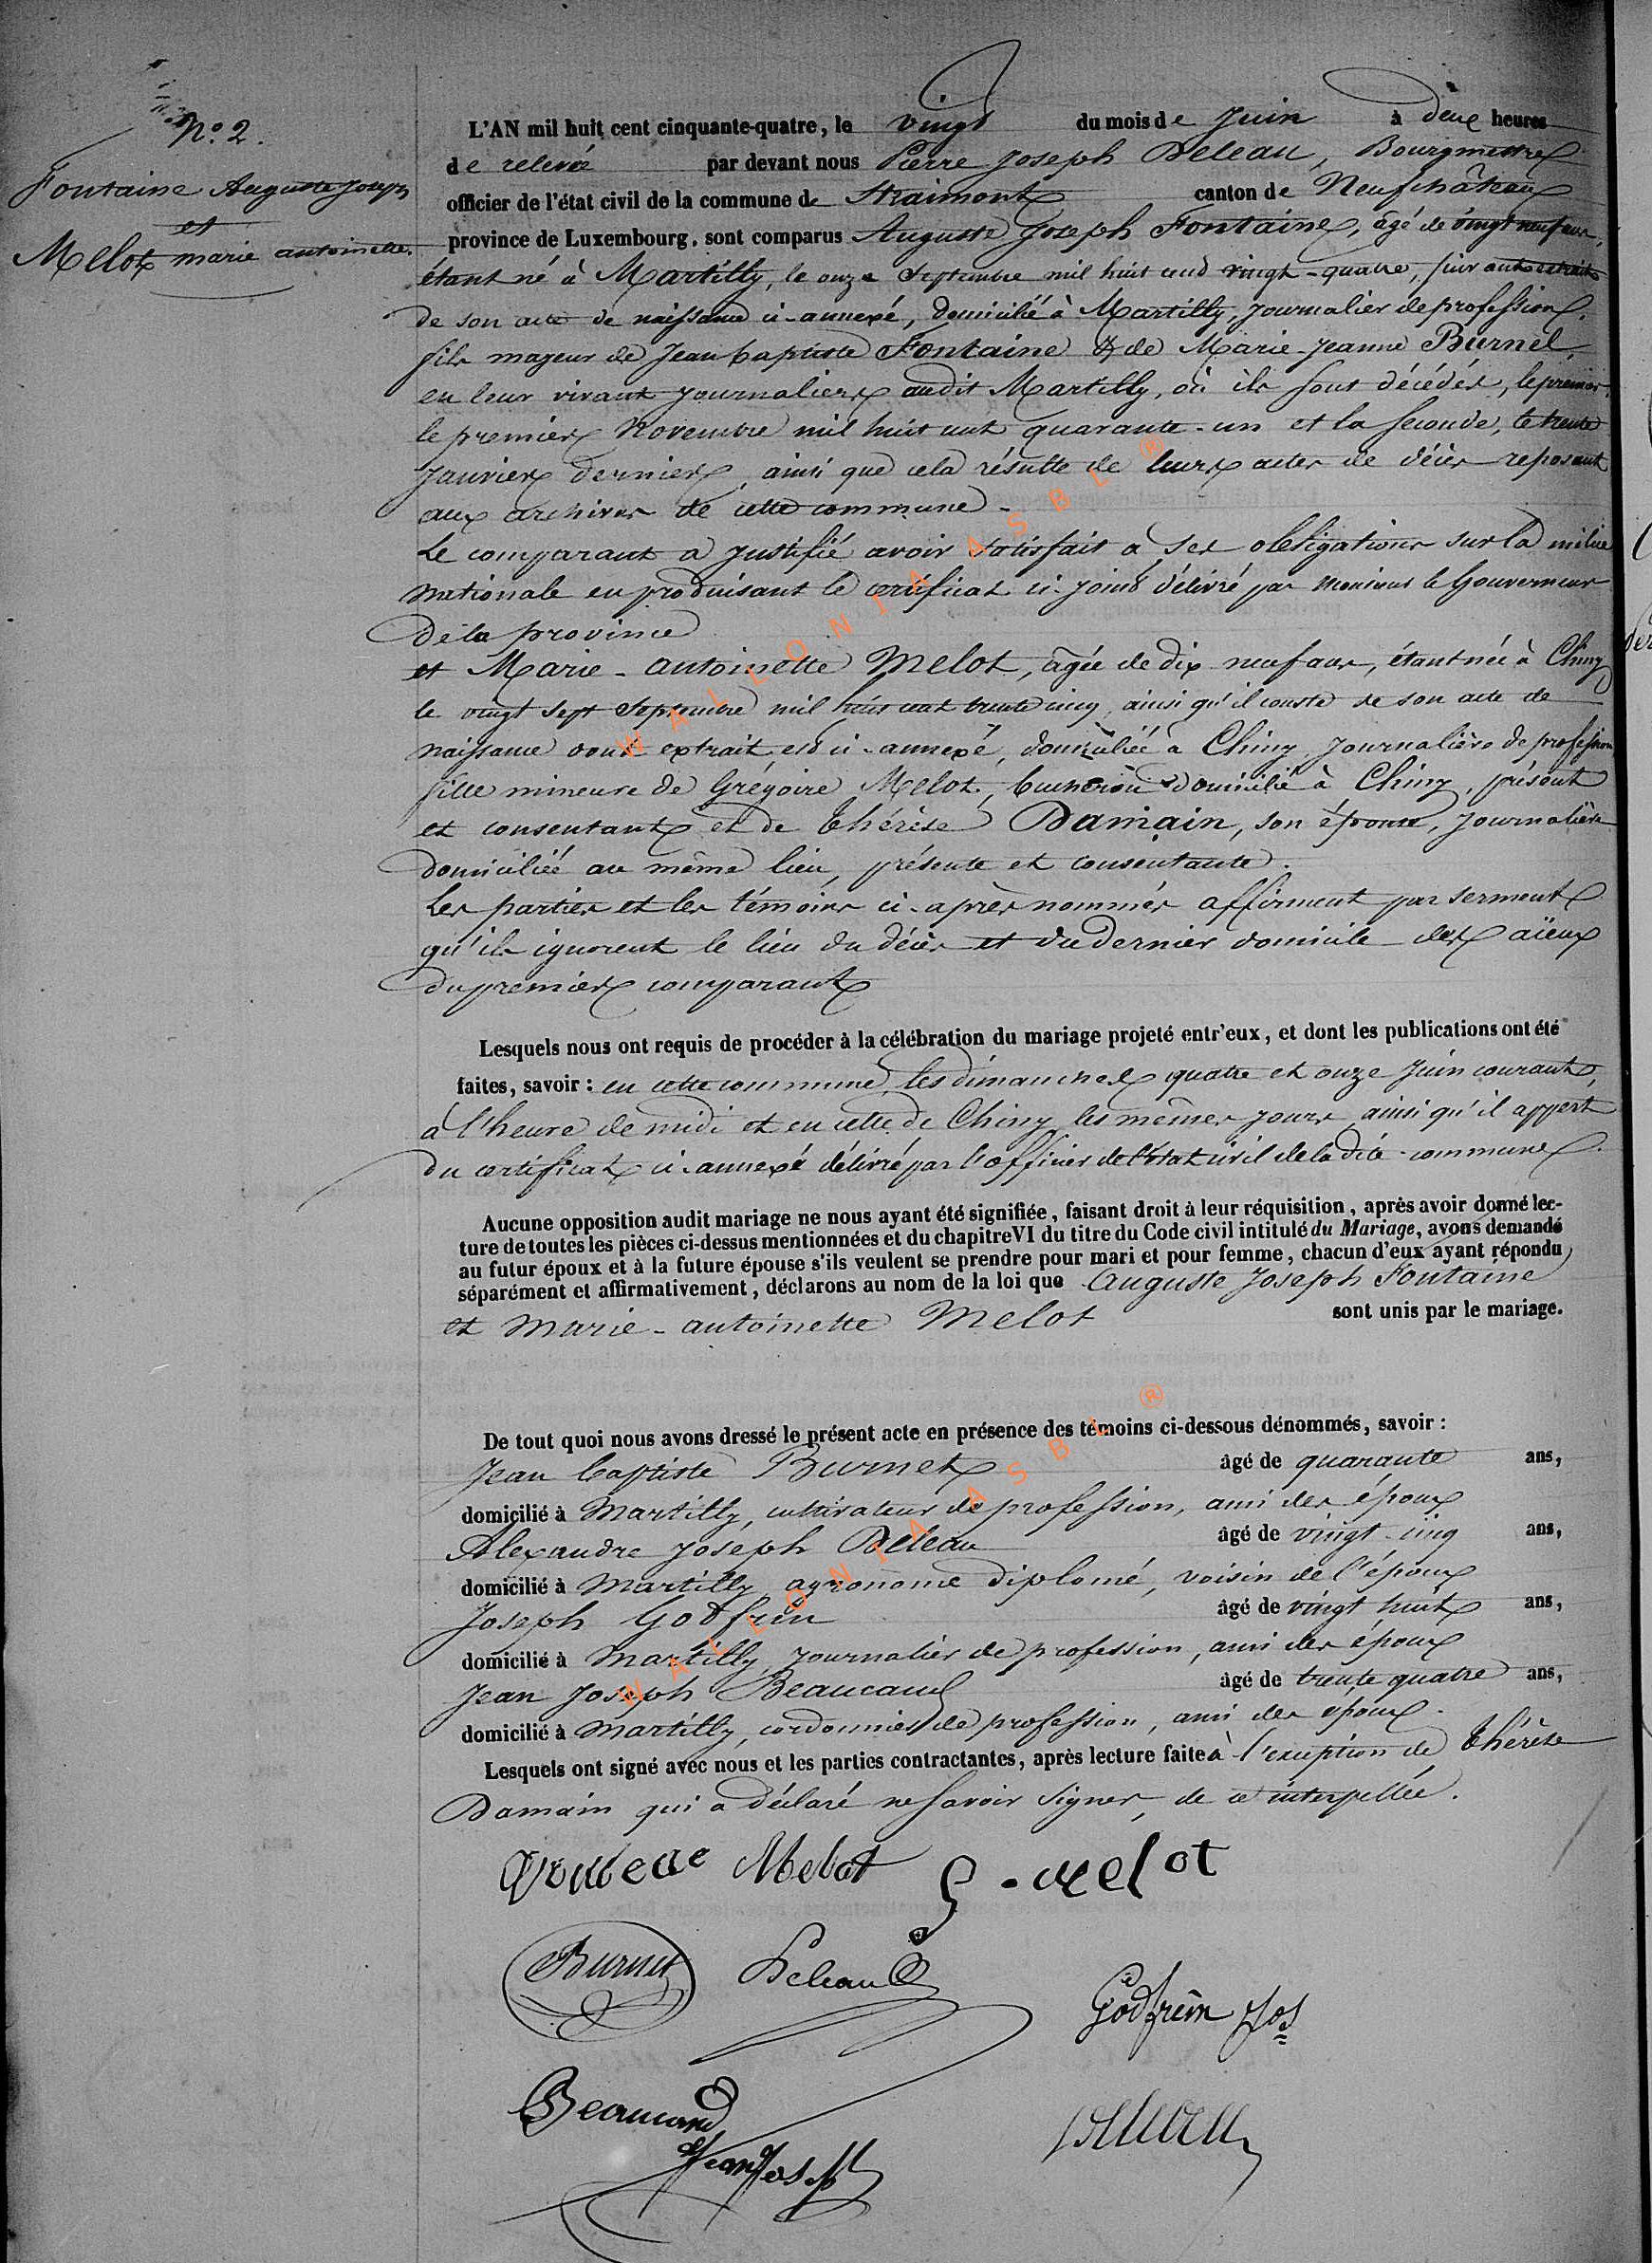 N.° 2.
Fontaine Auguste Joseph
et
Melot marie antoinette.
L'AN mil huit cent cinquante-quatre, le vingt du mois de Juin à deux heures
de relevée par devant nous Pierre Joseph Deleau, Bourgmestre
officier de l'état civil de la commune de Straimont canton de Neufchâteau
province de Luxembourg, sont comparus Auguste Joseph Fontaine, âgé de vingt neuf ans,
étant né à Martilly, le onze Septembre mil huit cent vingt-quatre, suivant extrait
de son acte de naissance ci-annexé, domicilié à Martilly, journalier de profession,
fils majeur de Jean baptiste Fontaine & de Marie-Jeanne Burnel,
en leur vivant journaliers audit Martilly, où ils sont décédés, le premier,
le premier Novembre mil huit cent quarante-un et la seconde, le trente
Janvier dernier, ainsi que cela résulte de leurs actes de décès reposant
aux archives de cette commune.
Le comparant a justifié avoir satisfait à ses obligations sur la milice
nationale en produisant le certificat ci-joint délivré par Monsieur le Gouverneur
de la province
et Marie-antoinette Melot, âgée de dix neuf ans, étant née à Chiny
le vingt sept Septembre mil huit cent trente cinq, ainsi qu'il conste de son acte de
naissance dont extrait, est ci-annexé, domiciliée à Chiny, journalière de profession
fille mineure de Grégoire Melot, bucheron domicilié à Chiny, présent
et consentant et de thérèse Damain, son épouse, journalière
domiciliée au même lieu, présente et consentante.
Les parties et les témoins ci-après nommés affirment par serment
qu'ils ignorent le lieu du décès et du dernier domicile des aïeux
du premier comparant
Lesquels nous ont requis de procéder à la célébration du mariage projeté entr'eux, et dont les publications ont été
faites, savoir : en cette commune, les dimanches quatre et onze Juin courant,
à l'heure de midi et en celle de Chiny les mêmes jours, ainsi qu'il appert
du certificat ci-annexé délivré par l'officier de l'état civil de la dite commune.
Aucune opposition audit mariage ne nous ayant été signifiée, faisant droit à leur réquisition, après avoir donné lec-
ture de toutes les pièces ci-dessus mentionnées et du chapitre VI du titre du Code civil intitulé du Mariage, avons demandé
au futur époux et à la future épouse s'ils veulent se prendre pour mari et pour femme, chacun d'eux ayant répondu
séparément et affirmativement, déclarons au nom de la loi que Auguste Joseph Fontaine
et Marie-antoinette Melot sont unis par le mariage.
De tout quoi nous avons dressé le présent acte en présence des témoins ci-dessous dénommés, savoir :
Jean baptiste Burnet âgé de quarante ans,
domicilié à Martilly, cultivateur de profession, ami des époux
Alexandre Joseph Deleau âgé de vingt-cinq ans,
domicilié à Martilly, agronome diplomé, voisin de l'époux
Joseph Godfrin âgé de vingt huit ans,
domicilié à Martilly, journalier de profession, ami des époux
Jean Joseph Beaucand âgé de trente quatre ans,
domicilié à Martilly, cordonnier de profession, ami des époux.
Lesquels ont signé avec nous et les parties contractantes, après lecture faite à l'exception de thérèse
Damain qui a déclaré ne savoir signer, de ce interpellée.
Melot G. Melot
Burnet Deleau
Godfrin Jos
Jean Joseph
WALLONIA ASBL ®
WALLONIA ASBL ®